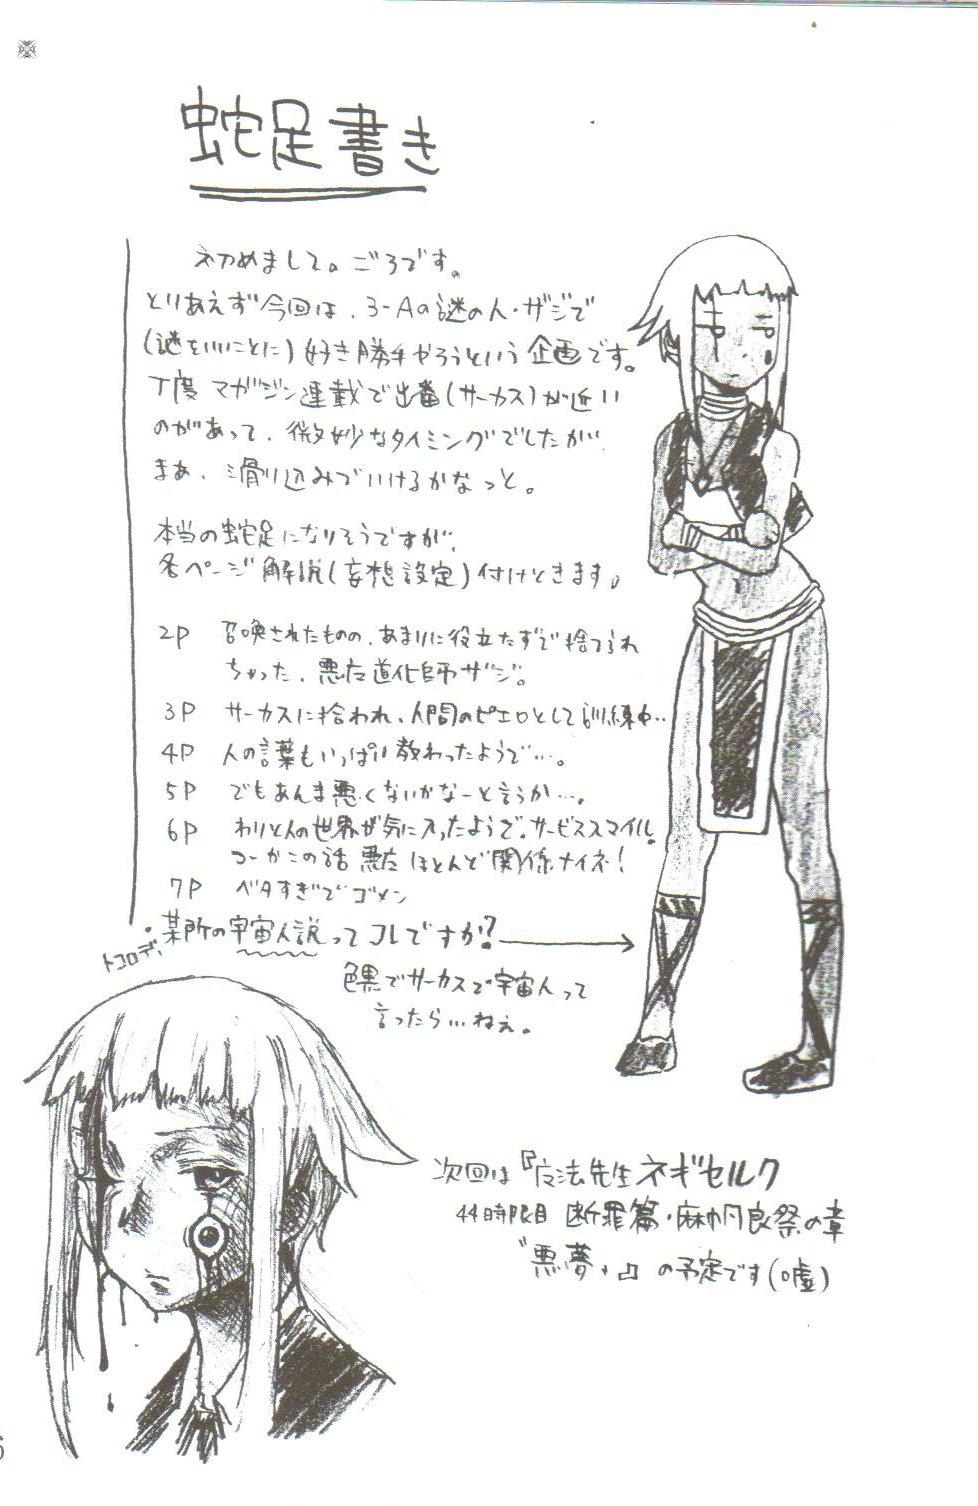 蛇足書き
初めまして。ごろです。
とりあえず今回は、3-Aの謎の人・ザジで
(謎をいいことに)好き勝手やろうという企画です。
丁度マガジン連載で出番(サーカス)が近い
のがあって、微妙なタイミングでしたが、
まあ、滑り込みでいけるかなっと。
本当の蛇足になりそうですが、
各ページ解説(妄想設定)付けときます。
2P 召喚されたものの、あまりに役立たずで捨てられ
ちゃった、悪魔道化師ザジ。
3P サーカスに拾われ、人間のピエロとして訓練中‥
4P 人の言葉もいっぱい教わったようで…。
5P でもあんま悪くないかなーと言うか…。
6P わりと人の世界が気に入ったようで。サービススマイル。
つーかこの話 悪魔ほとんど関係ナイネ!
7P ベタすぎでゴメン
トコロデ、
・某所の宇宙人説ってコレですか?
色黒でサーカスで宇宙人って
言ったら…ねぇ。
次回は『魔法先生ネギセルク
44時限目 断罪篇・麻帆良祭の章
"悪夢"』の予定です(嘘)
6